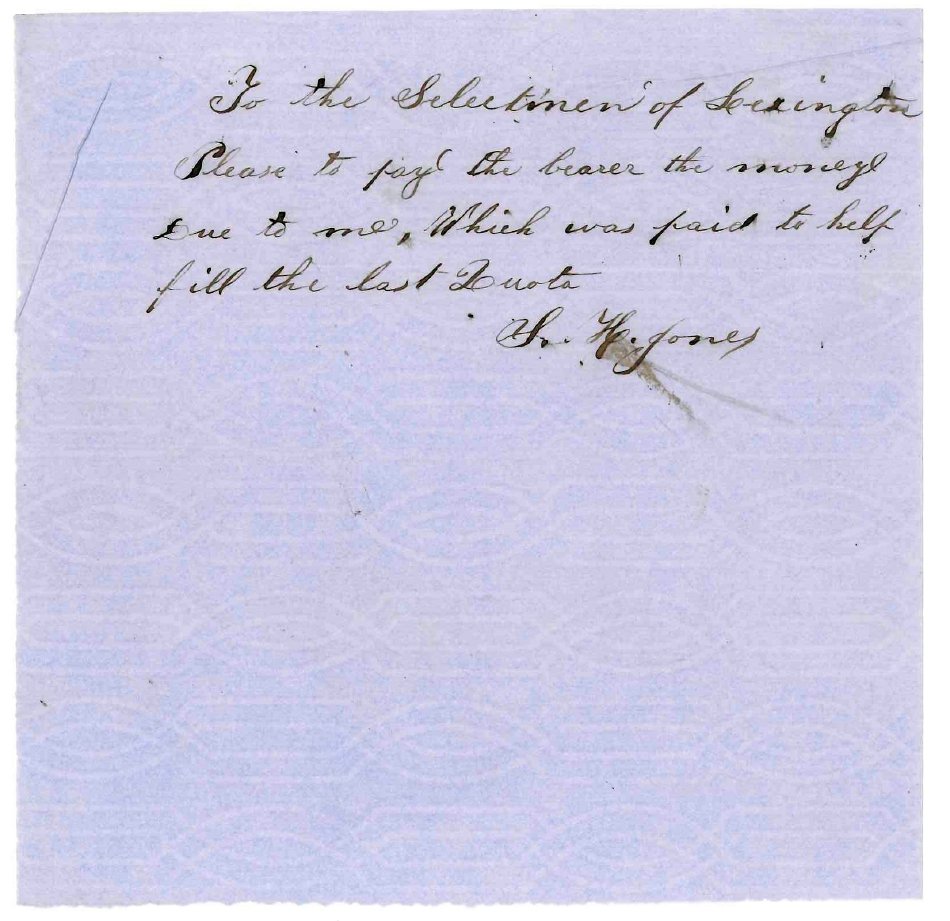 To the Selectmen of Lexington
Please to pay the bearer the money
Due to me, Which was paid to help
fill the last Quota
H. Jones